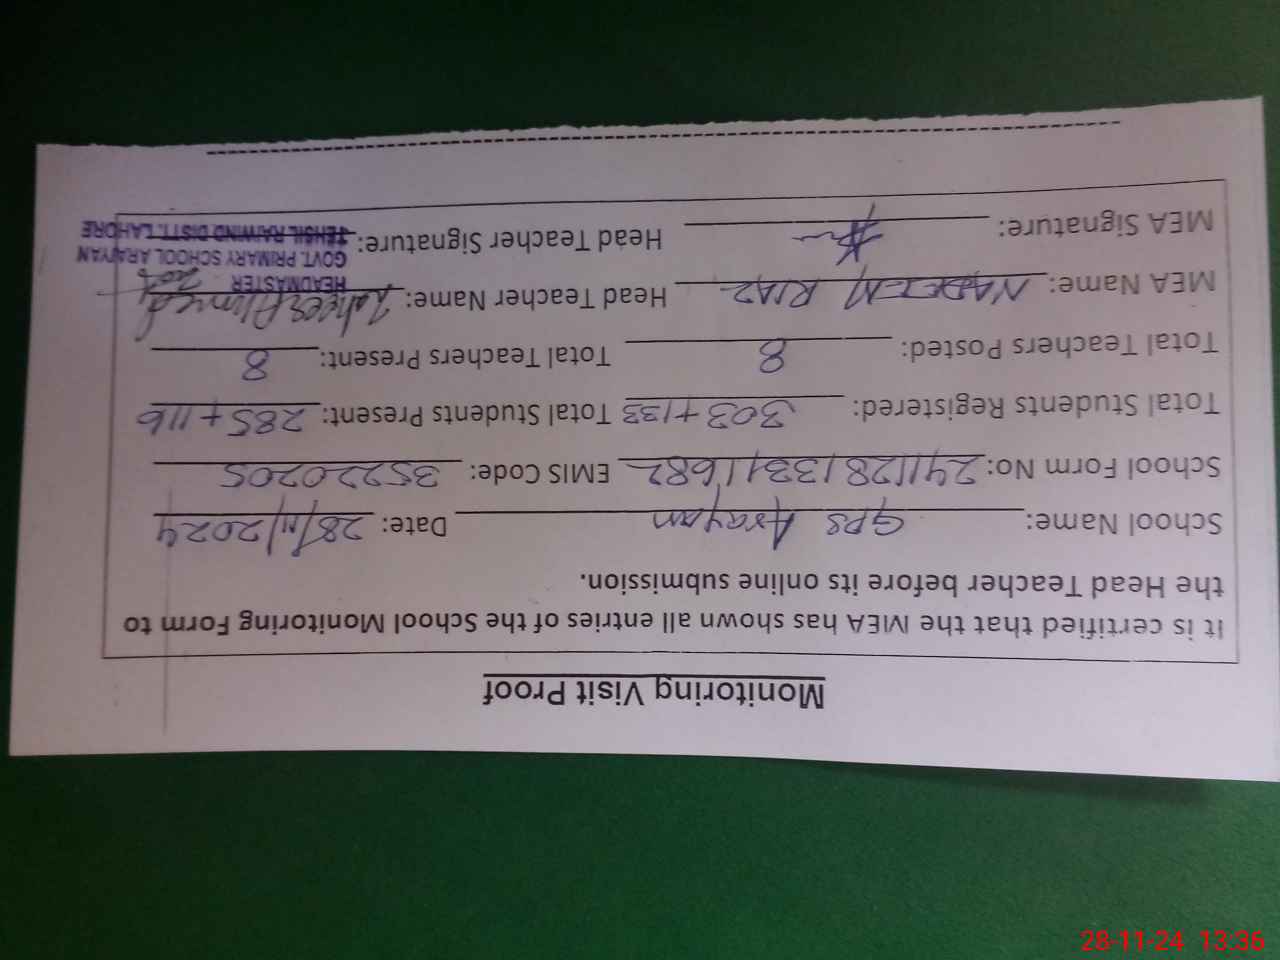 Monitoring Visit Proof
It is certified that the MEA has shown all entries of the School Monitoring Form to
the Head Teacher before its online submission.
School Name: GPS Arayan Date: 28/11/2024
School Form No: 241128133411682 EMIS Code: 35220205
Total Students Registered: 303+133 Total Students Present: 285+116
Total Teachers Posted: 8 Total Teachers Present: 8
MEA Name: NADEEM RIAZ Head Teacher Name: Zaheer Ahmed
HEADMASTER
GOVT. PRIMARY SCHOOL ARAIYAN
TEHSIL RAIWIND DISTT. LAHORE
MEA Signature: Head Teacher Signature:
28-11-24 13:36